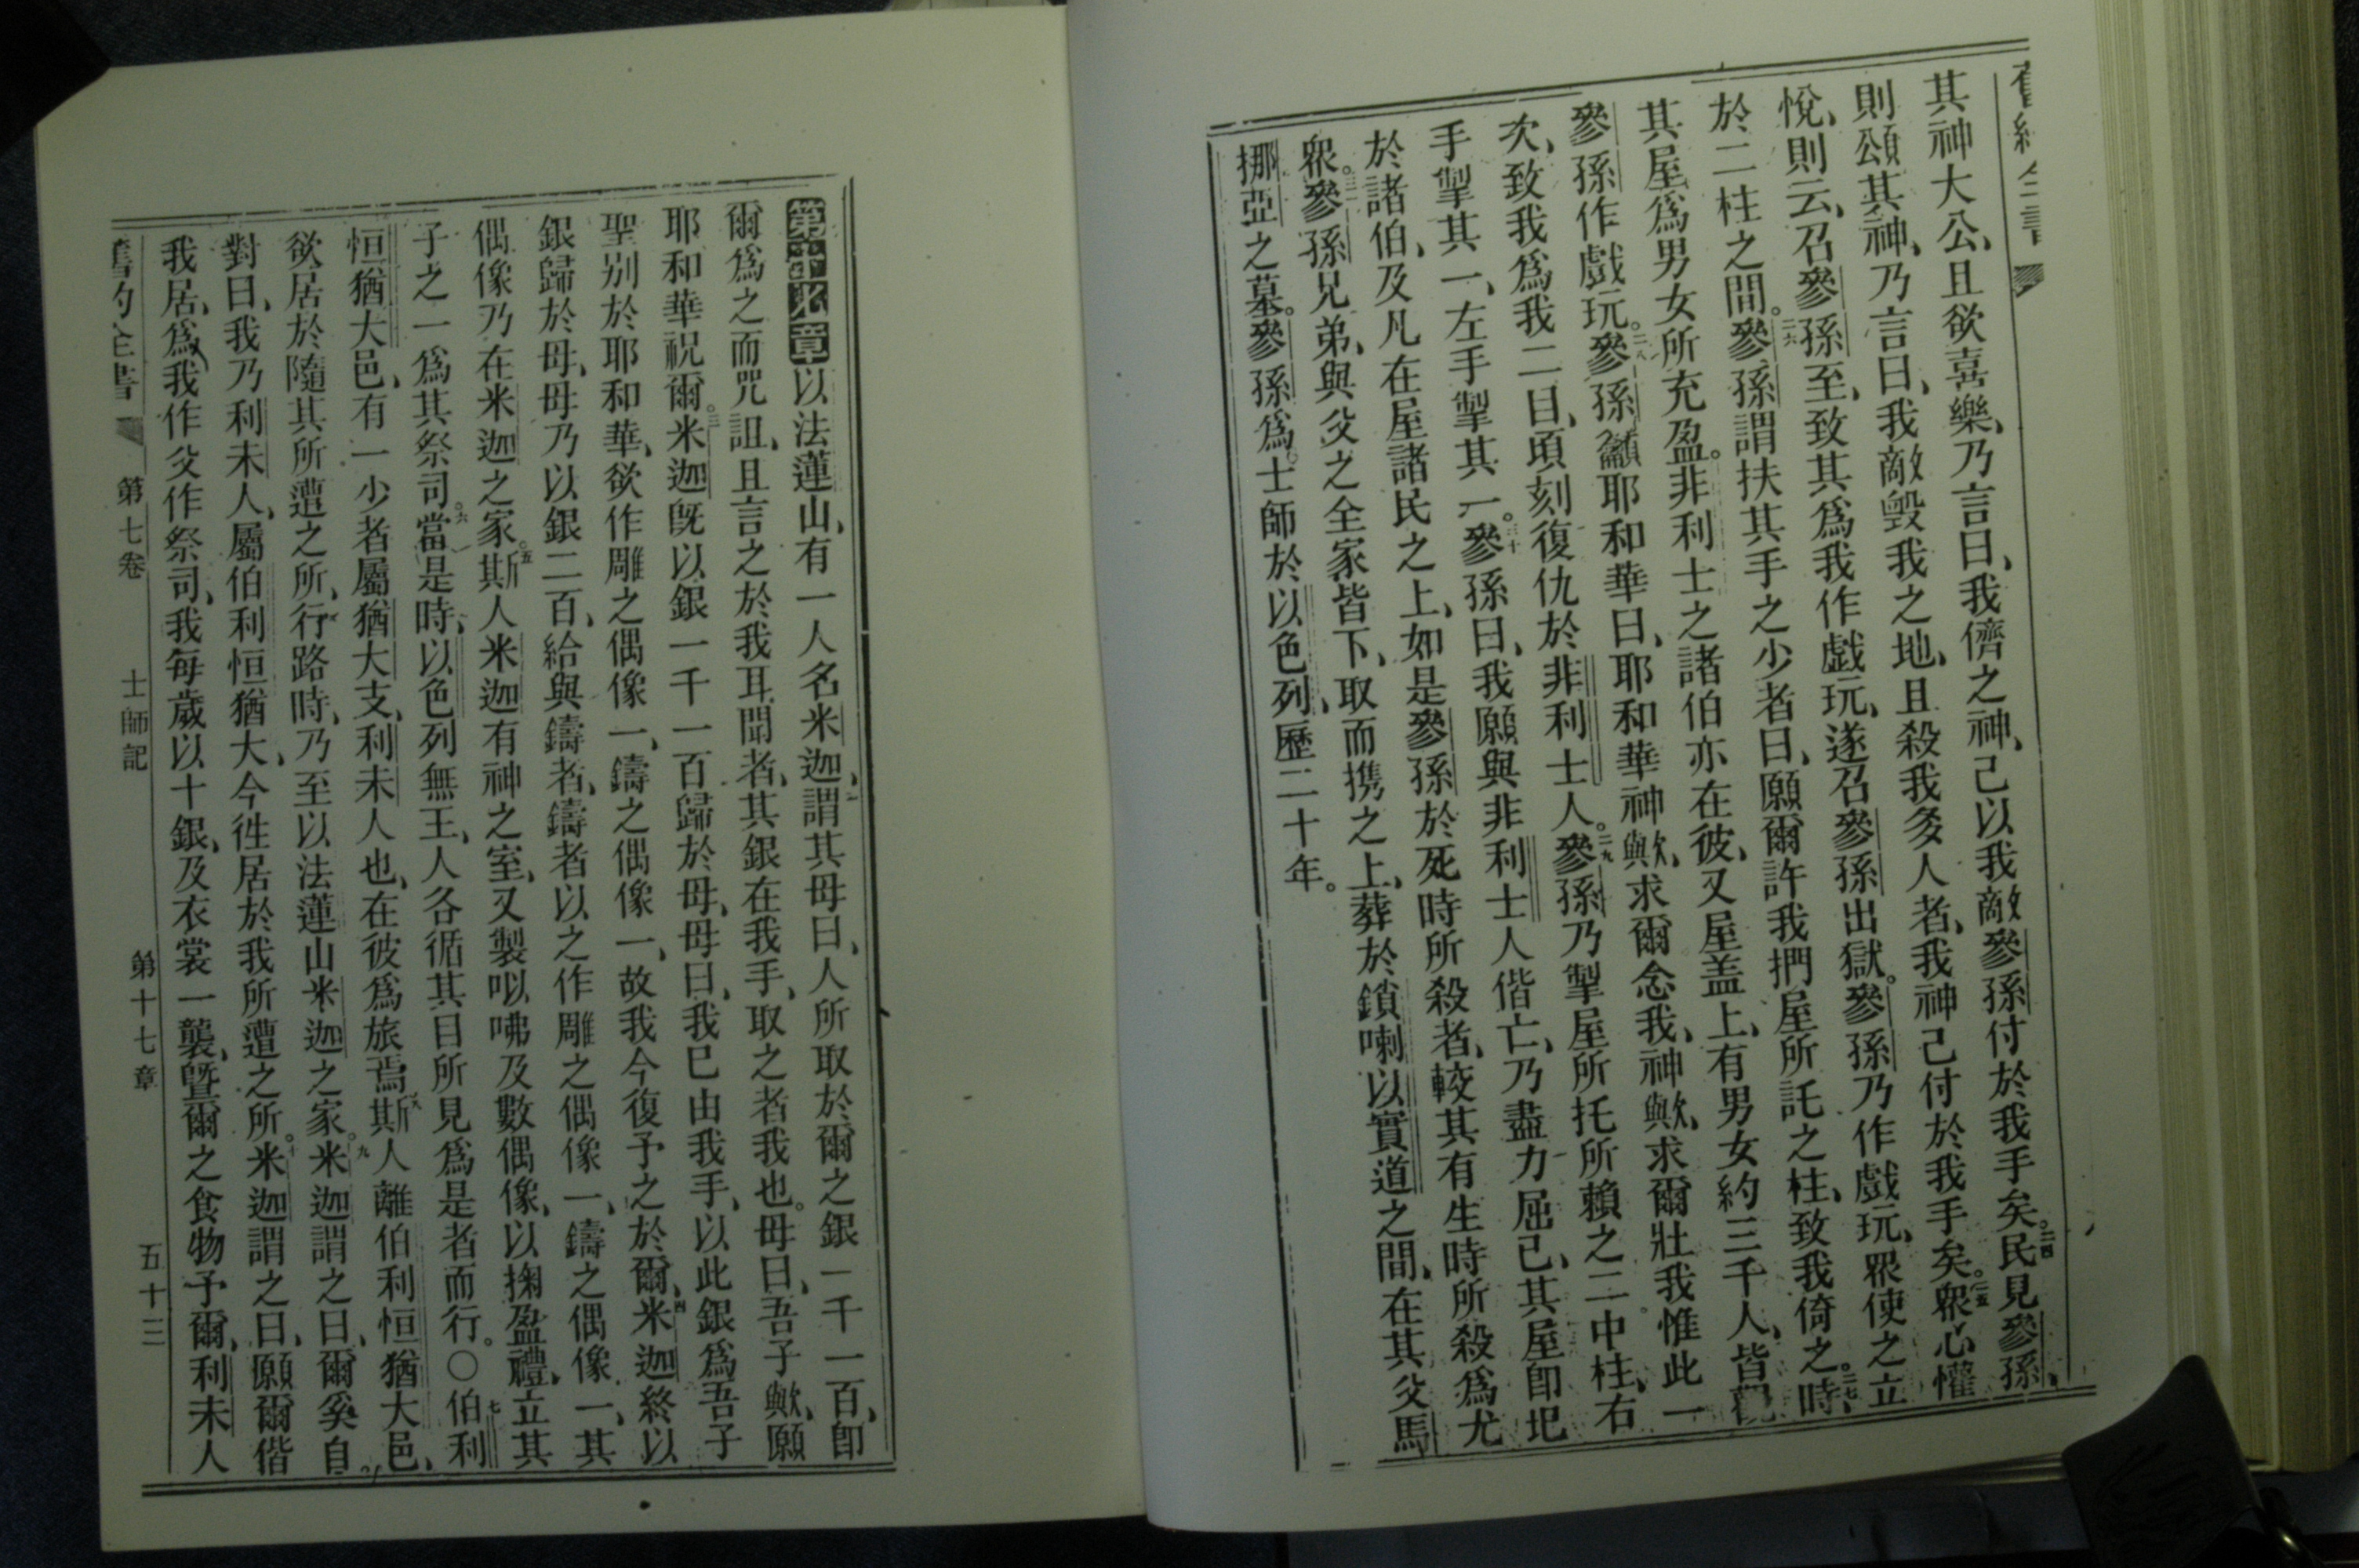 舊約全書
其神大公、且欲喜樂、乃言曰、我儕之神、己以我敵參孫付於我手矣。二四民見參孫、
則頌其神、乃言曰、我敵毀我之地、且殺我多人者、我神己付於我手矣。二五眾心懽
悅、則云、召參孫至、致其爲我作戲玩、遂召參孫出獄。參孫乃作戲玩、眾使之立
於二柱之間。二六參孫謂扶其手之少者曰、願爾許我捫屋所託之柱、致我倚之。二七時、
其屋爲男女所充盈。非利士之諸伯亦在彼、又屋盖上、有男女約三千人、皆觀
參孫作戲玩。二八參孫籲耶和華曰、耶和華神歟、求爾念我、神歟、求爾壯我惟此一
次、致我爲我二目、頃刻復仇於非利士人。二九參孫乃掣屋所托所賴之二中柱、右
手掣其一、左手掣其一。三十參孫曰、我願與非利士人偕亡、乃盡力屈己、其屋卽圮
於諸伯、及凡在屋諸民之上、如是參孫於死時所殺者、較其有生時所殺爲尤
眾。三一參孫兄弟、與父之全家皆下、取而携之上、葬於鎖喇以實道之間、在其父馬
挪亞之墓。參孫爲士師於以色列、歷二十年。
第十七章以法蓮山、有一人名米迦、二謂其母曰、人所取於爾之銀一千一百、卽
爾爲之而咒詛、且言之於我耳聞者、其銀在我手、取之者我也。母曰、吾子歟、願
耶和華祝爾。三米迦旣以銀一千一百歸於母、母曰、我已由我手、以此銀爲吾子
聖别於耶和華、欲作雕之偶像一、鑄之偶像一、故我今復予之於爾、四米迦終以
銀歸於母、母乃以銀二百、給與鑄者、鑄者以之作雕之偶像一、鑄之偶像一、其
偶像乃在米迦之家。五斯人米迦有神之室、又製㕥咈及數偶像、以掬盈禮、立其
子之一爲其祭司。六當是時、以色列無王、人各循其目所見爲是者而行。〇七伯利
恒猶大邑、有一少者屬猶大支、利未人也、在彼爲旅焉、八斯人離伯利恒猶大邑、
欲居於隨其所遭之所、行路時、乃至以法蓮山米迦之家。九米迦謂之曰、爾奚自。
對曰、我乃利未人、屬伯利恒猶大、今徃居於我所遭之所。十米迦謂之曰、願爾偕
我居、爲我作父作祭司、我每歲以十銀、及衣裳一襲、曁爾之食物予爾、利未人
舊約全書 第七卷 士師記 第十七章 五十三